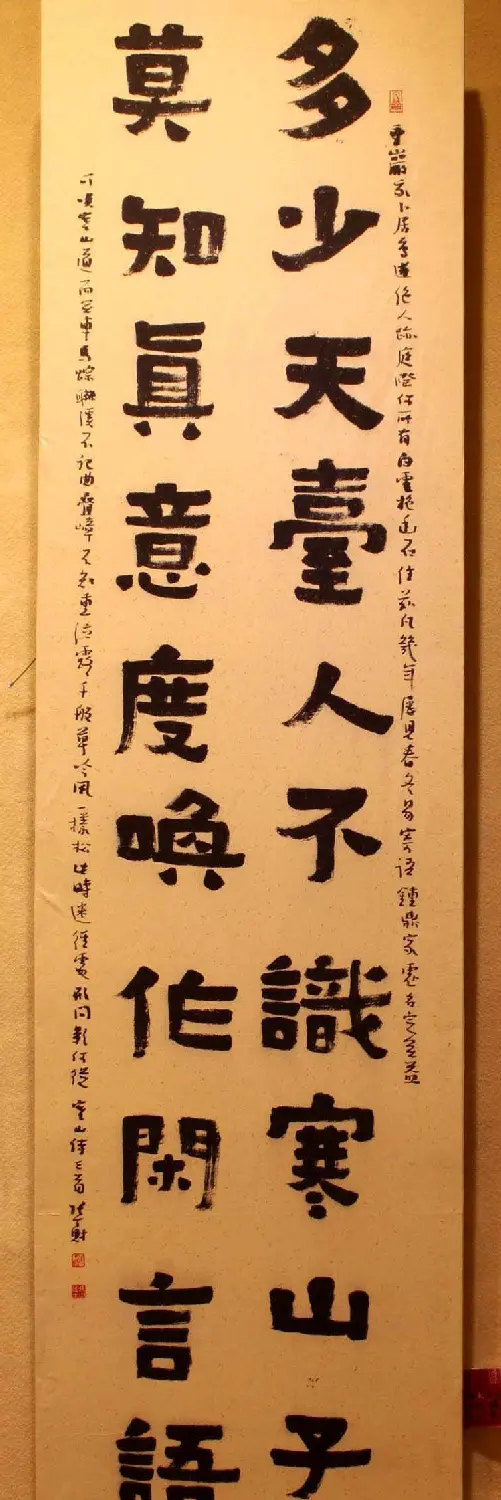 重巖我卜居鳥道絕人跡庭際何所有白雲抱幽石住茲凡幾年屢見春冬易寄語鍾鼎家虛名定無益
多少天臺人不識寒山子
莫知眞意度喚作閑言語
可笑寒山道而無車馬蹤聯溪不記曲疊嶂不知重泣露千般草吟風一樣松此時迷徑處形問影何從 寒山詩二首